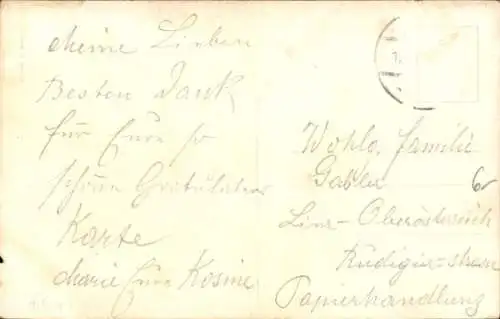 Meine Lieben
Besten Dank
für Eure so
schöne Gratulations
Karte
Marie Eure Kosine
Wohlg. Familie
Gabler
Linz-Oberösterreich
Rüdigier-strasse
Papierhandlung
6